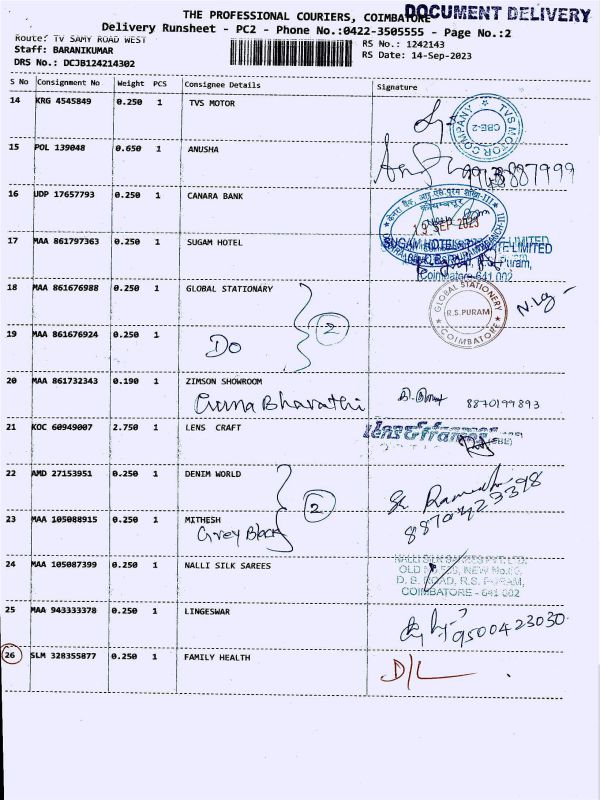 THE PROFESSIONAL COURIERS, COIMBATORE
DOCUMENT DELIVERY
Delivery Runsheet - PC2 - Phone No.:0422-3505555 - Page No.:2
Route: TV SAMY ROAD WEST
RS No.: 1242143
Staff: BARANIKUMAR
RS Date: 14-Sep-2023
DRS No.: DCJB124214302
S No Consignment No Weight PCS Consignee Details Signature
14 KRG 4545849 0.250 1 TVS MOTOR
TVS MOTOR COMPANY CBE-2
15 POL 139048 0.650 1 ANUSHA
16 UDP 17657793 0.250 1 CANARA BANK
19 SEP 2023
17 MAA 861797363 0.250 1 SUGAM HOTEL
SUGAM HOTELS PRIVATE LIMITED
Coimbatore-641 002
18 MAA 861676988 0.250 1 GLOBAL STATIONARY
GLOBAL STATIONERY R.S.PURAM COIMBATORE
2
19 MAA 861676924 0.250 1
Do
20 MAA 861732343 0.190 1 ZIMSON SHOWROOM
Bharathi
8870199893
21 KOC 60949007 2.750 1 LENS CRAFT
lens&frames
22 AMD 27153951 0.250 1 DENIM WORLD
2
23 MAA 105088915 0.250 1 MITHESH
Grey Black
24 MAA 105087399 0.250 1 NALLI SILK SAREES
NALLI SILK SAREES PVT. LTD.
D. B. ROAD, R.S. PURAM,
COIMBATORE - 641 002
25 MAA 943333378 0.250 1 LINGESWAR
9500423030
26 SLM 328355877 0.250 1 FAMILY HEALTH
D/L